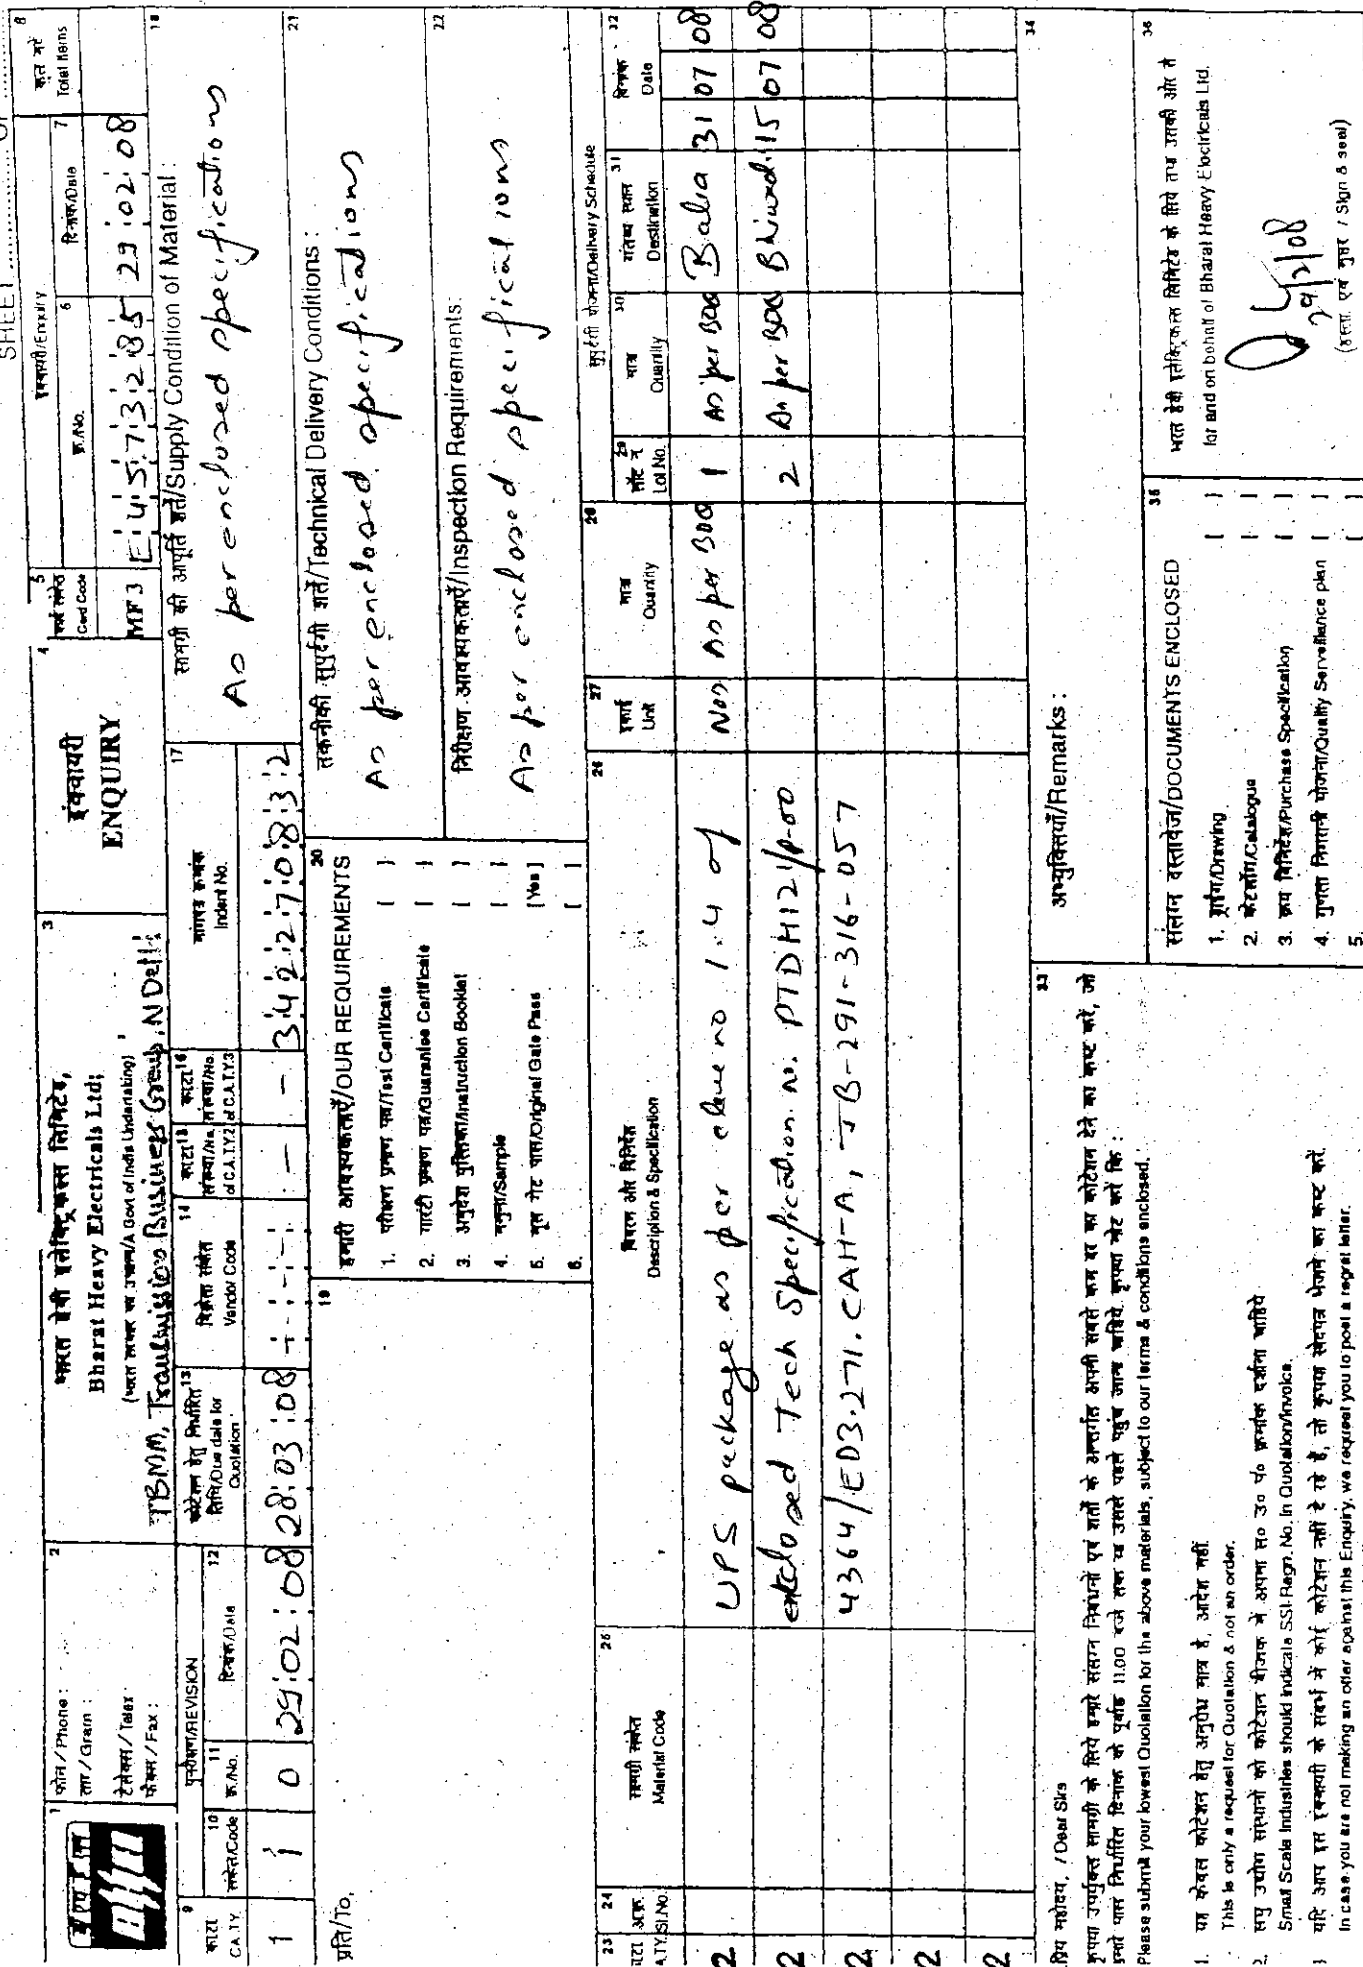 SHEET ........... OF
1
2
फोन / Phone :
तार / Gram :
टेलेक्स / Telex
फेक्स / Fax :
3
भारत हेवी इलेक्ट्रिकल्स लिमिटेड,
Bharat Heavy Electricals Ltd;
(भारत सरकार का उपक्रम/A Govt of India Undertaking)
TBMM, Transmission Business Group, N Delhi
4
इंक्वायरी
ENQUIRY
5
कार्ड संकेत
Card Code
MF3
इंक्वायरी/Enquiry
6
क्र./No.
E 4 5 7 3 2 8 5
7
दिनांक/Date
29 02 08
8
कुल मदें
Total Items
9
काटा
C.A.T.Y.
1
पुनरीक्षण/REVISION
10
संकेत/Code
1
11
क्र./No.
0
12
दिनांक/Date
29 02 08
13
कोटेशन हेतु निर्धारित
तिथि/Due date for
Quotation
28 03 08
14
विक्रेता संकेत
Vendor Code
- - - -
15
काटा
संख्या/No.
of C.A.T.Y.2
-
16
काटा
संख्या/No.
of C.A.T.Y.3
-
17
मांगपत्र क्रमांक
Indent No.
3 4 2 2 7 0 8 3 2
18
सामग्री की आपूर्ति शर्ते/Supply Condition of Material :
As per enclosed specifications
प्रति/To,
19
20
हमारी आवश्यकताएँ/OUR REQUIREMENTS
1. परीक्षण प्रमाण पत्र/Test Certificate [ ]
2. गारंटी प्रमाण पत्र/Guarantee Certificate [ ]
3. अनुदेश पुस्तिका/Instruction Booklet [ ]
4. नमूना/Sample [ ]
5. मूल गेट पास/Original Gate Pass [Yes]
6. [ ]
21
तकनीकी सुपुर्दगी शर्ते/Technical Delivery Conditions :
As per enclosed specifications
22
निरीक्षण आवश्यकताएँ/Inspection Requirements:
As per enclosed specifications
23
काटा
A.T.Y.
24
क्रम.
Sl.No.
25
सामग्री संकेत
Material Code
26
विवरण और विनिर्देश
Description & Specification
27
इकाई
Unit
28
मात्रा
Quantity
सुपुर्दगी योजना/Delivery Schedule
29
लॉट नं.
Lot No.
30
मात्रा
Quantity
31
गंतव्य स्थान
Destination
32
दिनांक
Date
2 UPS package as per clause no 1.4 of Nos As per BOQ 1 As per BOQ Balia 31 07 08
2 enclosed Tech Specification no. PTDH121/p-00 2 As per BOQ Bhiwadi 15 07 08
2 4364/ED3.271.CAH-A, TB-291-316-057
2
2
33
प्रिय महोदय, / Dear Sirs
कृपया उपर्युक्त सामग्री के लिये हमारे संलग्न निबंधनों एवं शर्तों के अन्तर्गत अपनी सबसे कम दर का कोटेशन देने का कष्ट करें, जो
हमारे पास निर्धारित दिनांक के पूर्वाह्न 11.00 बजे तक या उससे पहले पहुंच जाना चाहिये. कृपया नोट करें कि :
Please submit your lowest Quotation for the above materials, subject to our terms & conditions enclosed.
1. यह केवल कोटेशन हेतु अनुरोध मात्र है, आदेश नहीं.
This is only a request for Quotation & not an order.
2. लघु उद्योग संस्थानों को कोटेशन बीजक में अपना ल० उ० पं० क्रमांक दर्शाना चाहिये
Small Scale Industries should indicate SSI Regn. No. In Quotation/Invoice.
यदि आप इस इंक्वायरी के संदर्भ में कोई कोटेशन नहीं दे रहे हैं, तो कृपया खेदपत्र भेजने का कष्ट करें.
In case you are not making an offer against this Enquiry, we request you to post a regret letter.
34
अभ्युक्तियाँ/Remarks :
35
संलग्न दस्तावेज/DOCUMENTS ENCLOSED
1. ड्राईंग/Drawing [ ]
2. केटेलॉग/Catalogue [ ]
3. क्रय विनिर्देश/Purchase Specification [ ]
4. गुणता निगरानी योजना/Quality Serveillance plan [ ]
5. [ ]
36
भारत हेवी इलेक्ट्रिकल्स लिमिटेड के लिये तथा उसकी ओर से
for and on behalf of Bharat Heavy Electricals Ltd.
29/2/08
(हस्ता. एवं मुहर / Sign & seal)